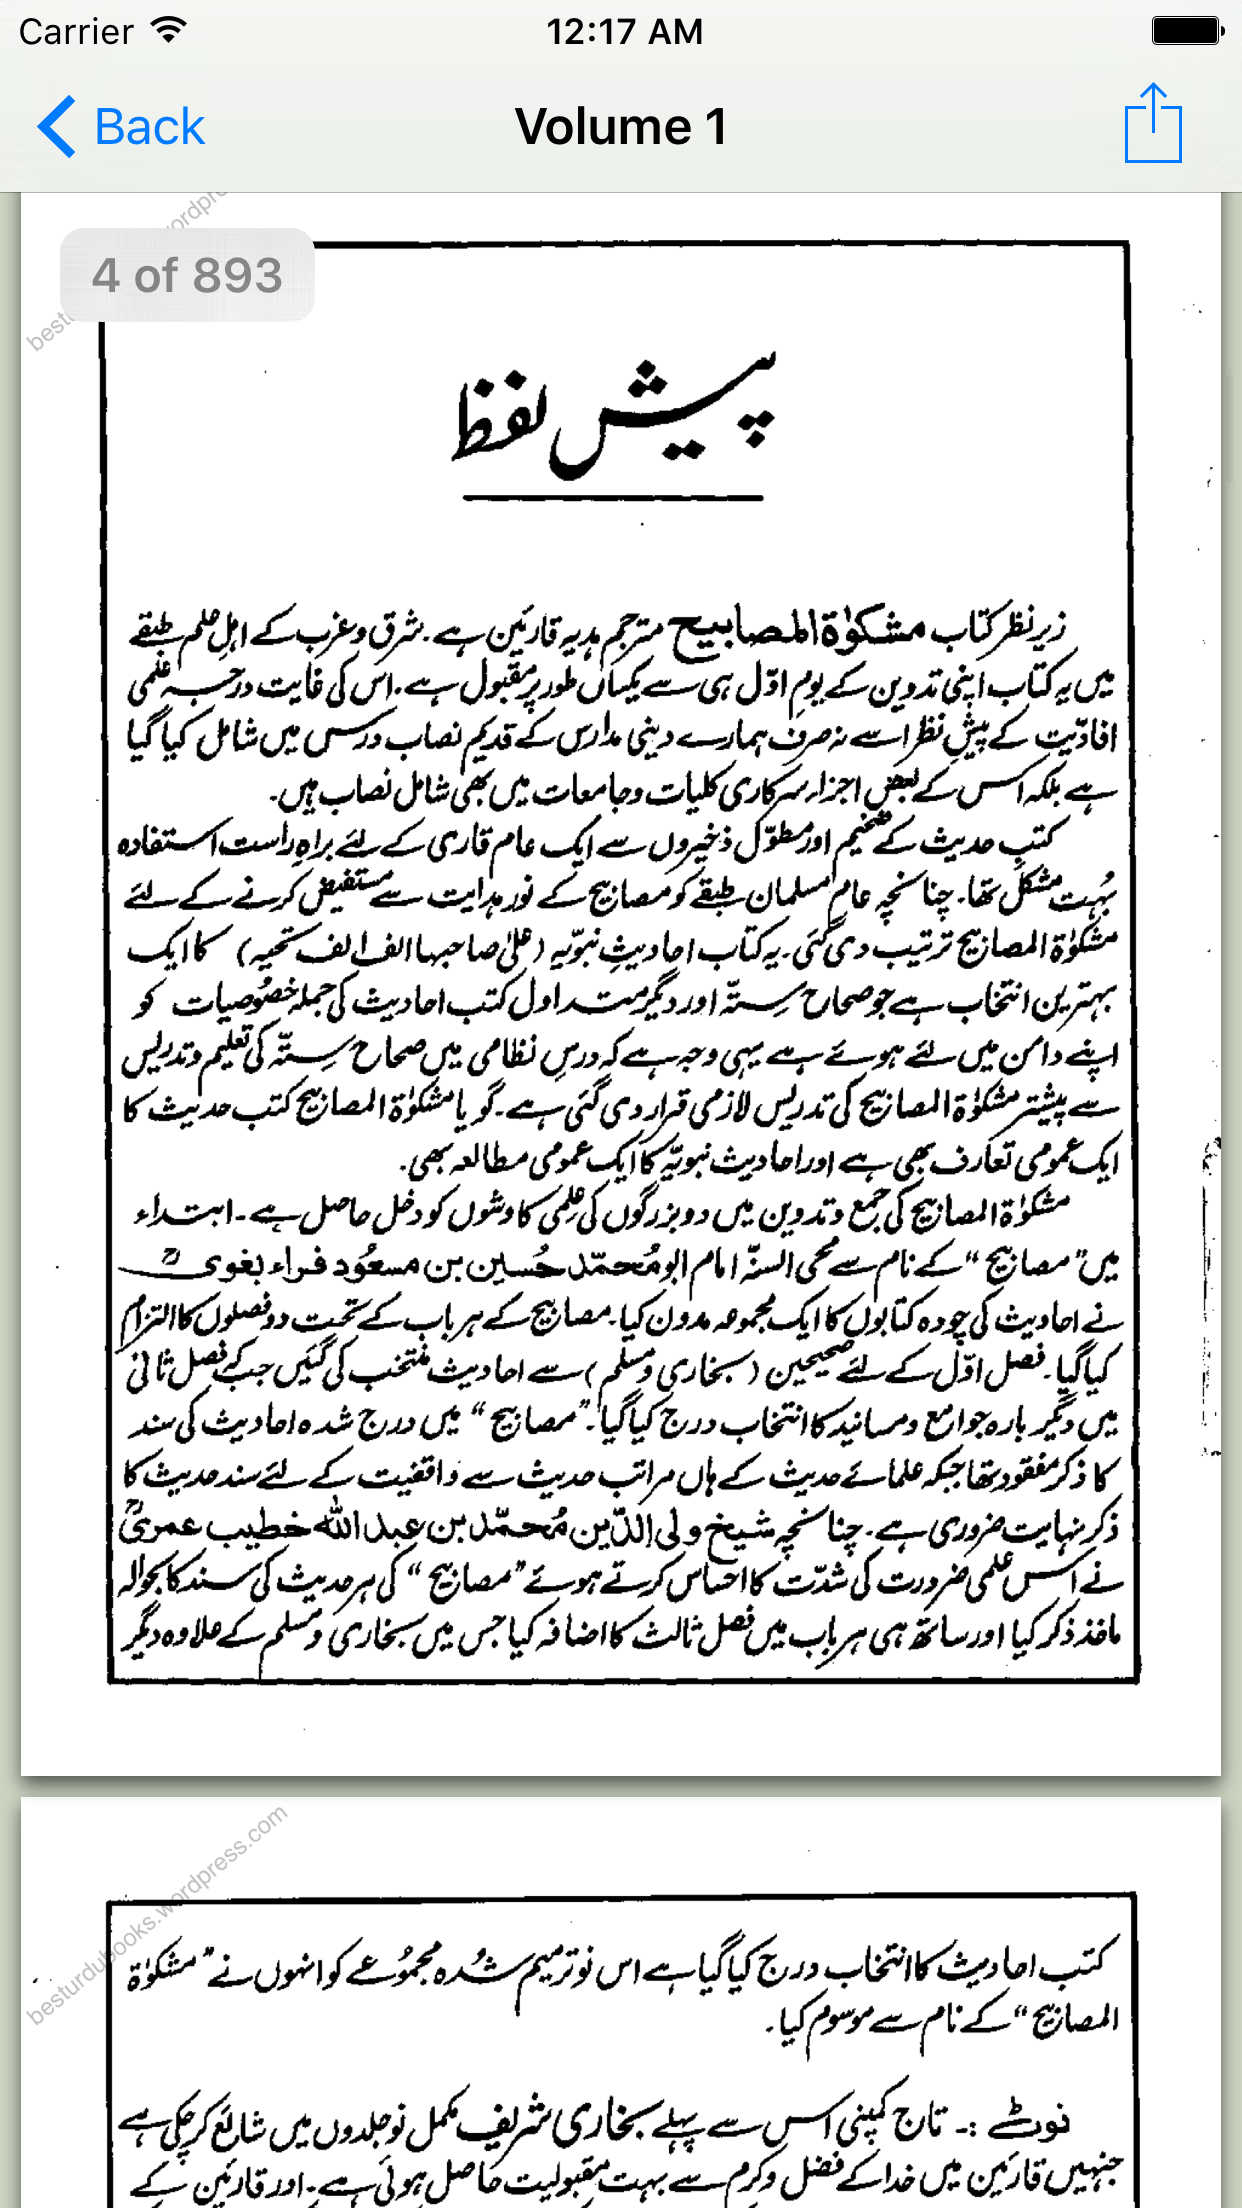 Carrier
12:17 AM
Back
Volume 1
4 of 893
پیش لفظ
زیر نظر کتاب مشکوٰۃ المصابیح مترجم ہدیہ قارئین ہے۔ شرق و غرب کے اہلِ علم طبقے
میں یہ کتاب اپنی تدوین کے یومِ اوّل ہی سے یکساں طور پر مقبول ہے۔ اس کی غایت درجہ علمی
افادیّت کے پیشِ نظر اسے نہ صرف ہمارے دینی مدارس کے قدیم نصاب درس میں شامل کیا گیا
ہے بلکہ اس کے بعض اجزاء سرکاری کلیات و جامعات میں بھی شامل نصاب ہیں۔
کتبِ حدیث کے ضخیم اور مطوّل ذخیروں سے ایک عام قاری کے لئے براہِ راست استفادہ
بُہت مشکل تھا۔ چنانچہ عام مسلمان طبقے کو مصابیح کے نور ہدایت سے مستفیض کرنے کے لئے
مشکوٰۃ المصابیح ترتیب دی گئی۔ یہ کتاب احادیثِ نبویّہ (علیٰ صاحبہا الف الف تحیہ) کا ایک
بہترین انتخاب ہے جو صحاح ستّہ اور دیگر متداول کتب احادیث کی جملہ خصُوصیات کو
اپنے دامن میں لئے ہوئے ہے یہی وجہ ہے کہ درسِ نظامی میں صحاح ستّہ کی تعلیم و تدریس
سے پیشتر مشکوٰۃ المصابیح کی تدریس لازمی قرار دی گئی ہے۔ گویا مشکوٰۃ المصابیح کتب حدیث کا
ایک عمومی تعارف بھی ہے اور احادیث نبویّہ کا ایک عمومی مطالعہ بھی۔
مشکوٰۃ المصابیح کی جمع و تدوین میں دو بزرگوں کی علمی کاوشوں کو دخل حاصل ہے۔ ابتداء
میں "مصابیح" کے نام سے محی السنّۃ امام ابو مُحمّد حُسین بن مسعُود فراء بغویؒ
نے احادیث کی چودہ کتابوں کا ایک مجموعہ مدون کیا۔ مصابیح کے ہر باب کے تحت دو فصلوں کا التزام
کیا گیا۔ فصل اوّل کے لئے صحیحین (بخاری و مسلم) سے احادیث منتخب کی گئیں جب کہ فصل ثانی
میں دیگر بارہ جوامع و مسانید کا انتخاب درج کیا گیا۔ "مصابیح" میں درج شدہ احادیث کی سند
کا ذکر مفقود تھا جبکہ علمائے حدیث کے ہاں مراتب حدیث سے واقفیت کے لئے سند حدیث کا
ذکر نہایت ضروری ہے۔ چنانچہ شیخ ولی الدّین مُحمّد بن عبد اللہ خطیب عمریؒ
نے اس علمی ضرورت کی شدّت کا احساس کرتے ہوئے "مصابیح" کی ہر حدیث کی سند کا بحوالہ
ماخذ ذکر کیا اور ساتھ ہی ہر باب میں فصل ثالث کا اضافہ کیا جس میں بخاری و مسلم کے علاوہ دیگر
besturdubooks.wordpress.com
کتب احادیث کا انتخاب درج کیا گیا ہے اس نو ترمیم شُدہ مجمُوعے کو انہوں نے "مشکوٰۃ
المصابیح" کے نام سے موسوم کیا۔
نوٹ :۔ تاج کمپنی اس سے پہلے بخاری شریف مکمل نو جلدوں میں شائع کر چکی ہے
جنہیں قارئین میں خدا کے فضل و کرم سے بہت مقبولیت حاصل ہوئی ہے۔ اور قارئین کے